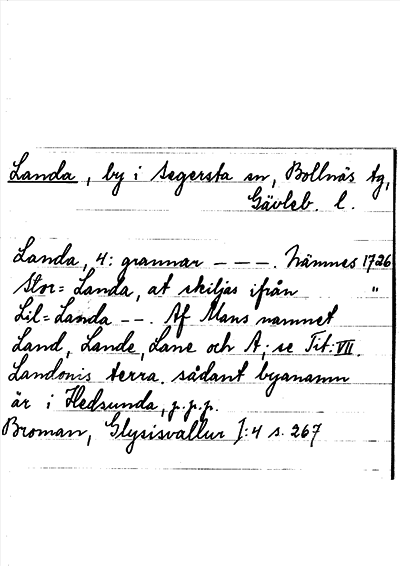 Landa, by i Segersta sn, Bollnäs tg,
Gävleb. l.
Landa, 4: grannar - - -. Nämnes 1726
Stor=Landa, at skiljas ifrån "
Lil=Landa - -. Af Mans namnet
Land, Lande, Lane och A; se Tit: VII.
Landonis terra. sådant byanamn
är i Hedsunda, p.p.p.
Broman, Glysisvallur I:4 s. 267